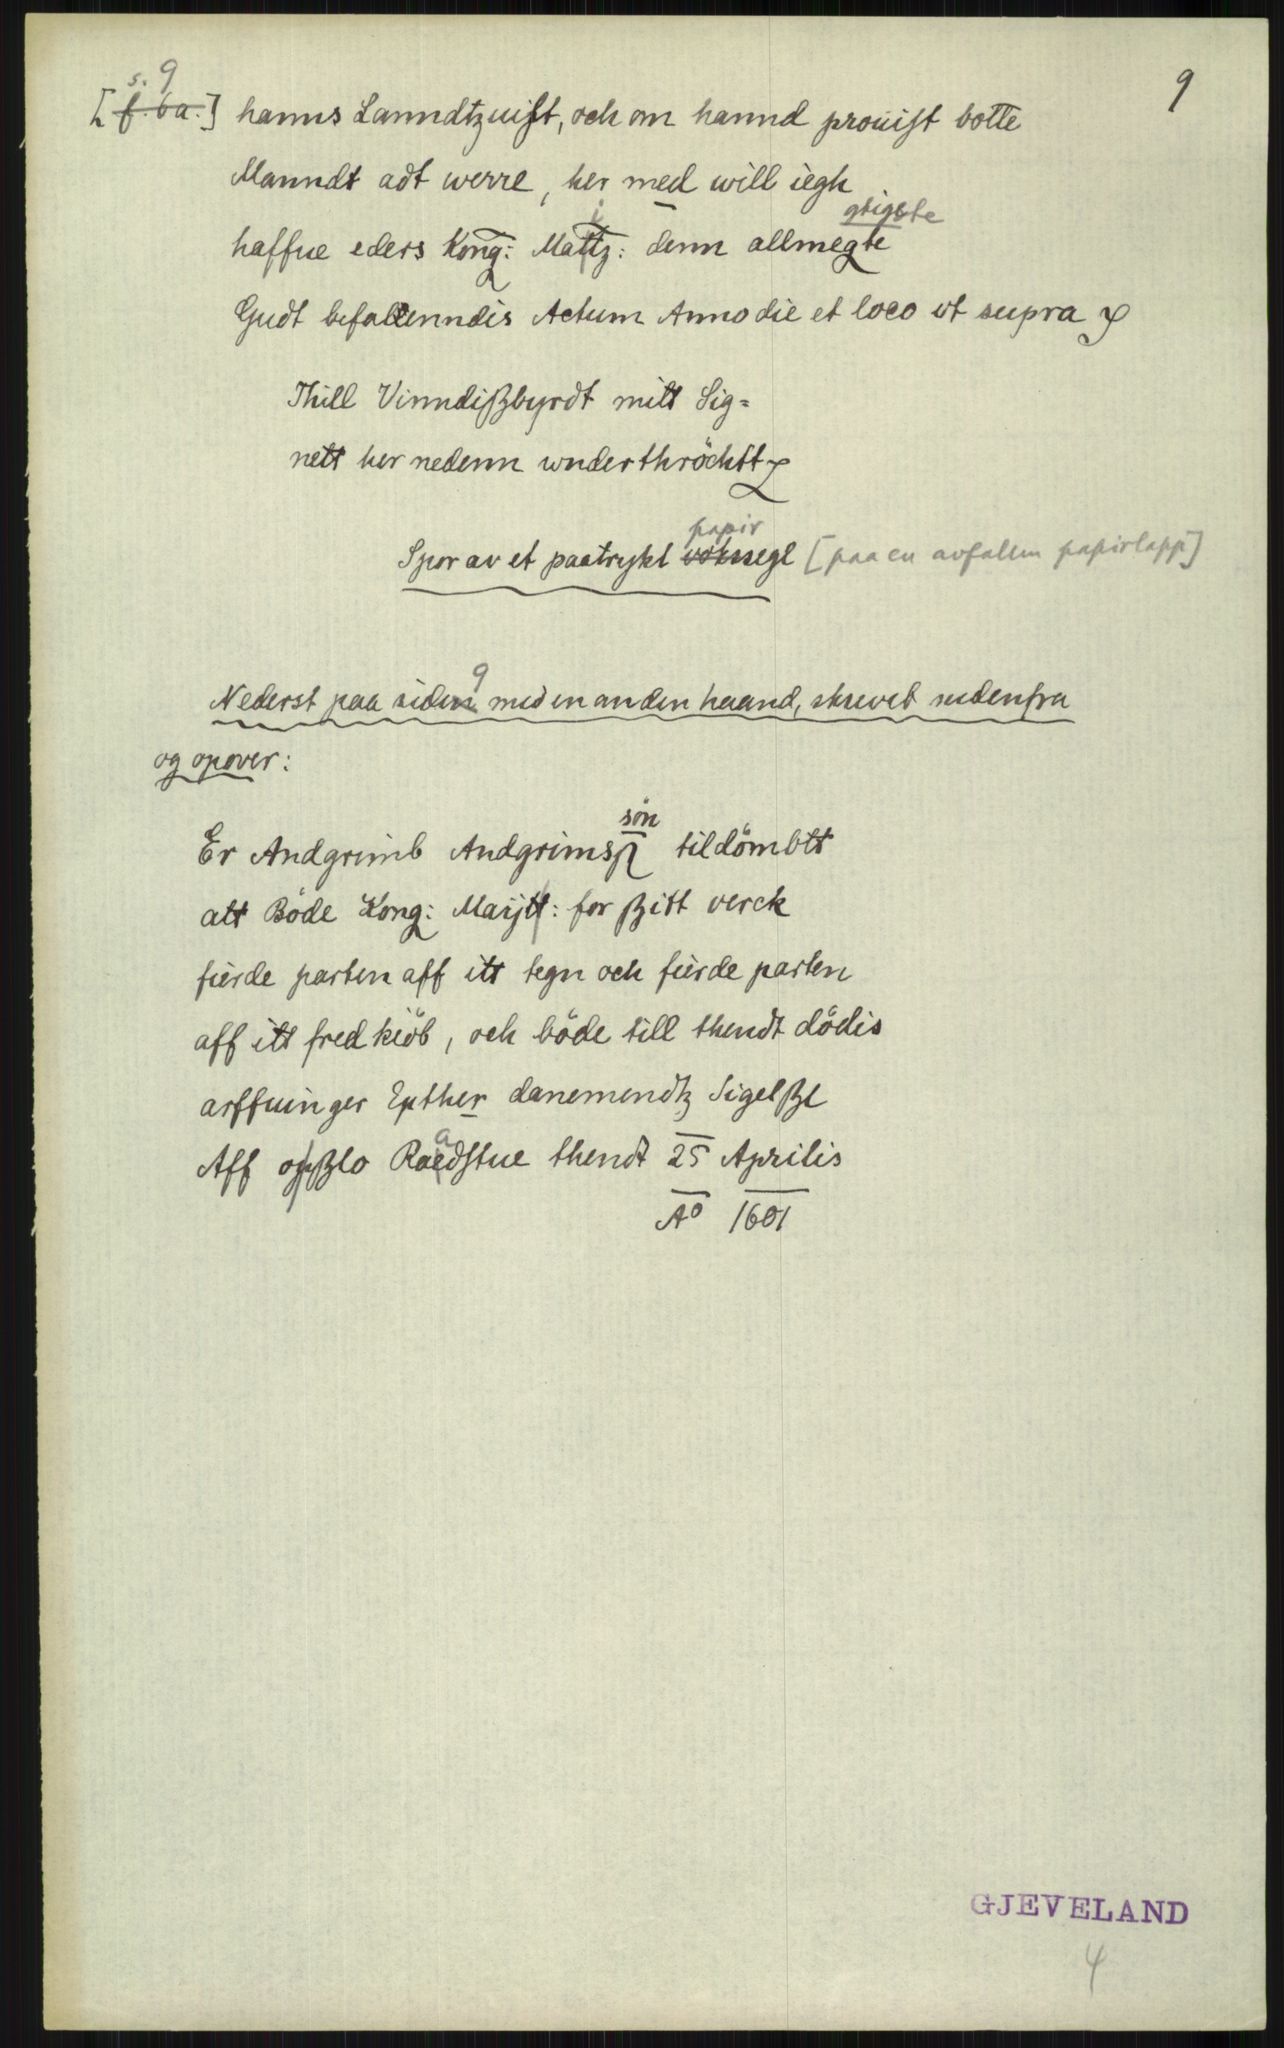 9
s. 9
[f. 6a.] hanns Lanndtzuist, och om hannd prouist botte
Manndt adt werre, her med will iegh
gtigste
haffue eders Kong: Mattz: denn allmegte
Gudt befallenndis Actum Anno die et loco vt supra
Thill Vinndißbyrdt mitt Sig=
nett her nedenn wnderthröchtt
papir
Spor av et paatrykt vokssegl [paa en avfallen papirlapp]
9
Nederst paa siden med en anden haand, skrevet nedenfra
og opover:
søn
Er Andgrimb Andgrimsß tildömbtt
att Böde Kong: Maijtt: for ßitt verck
fierde parten aff itt tegn och fierde parten
aff itt fredkiöb, och böde till thendt dödis
arffuinger Epther danemendtz Sigelße
Aff opßlo Raadstue thendt 25 Aprilis
A° 1601
GJEVELAND
4